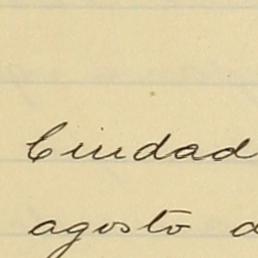 Ciudad
agosto d